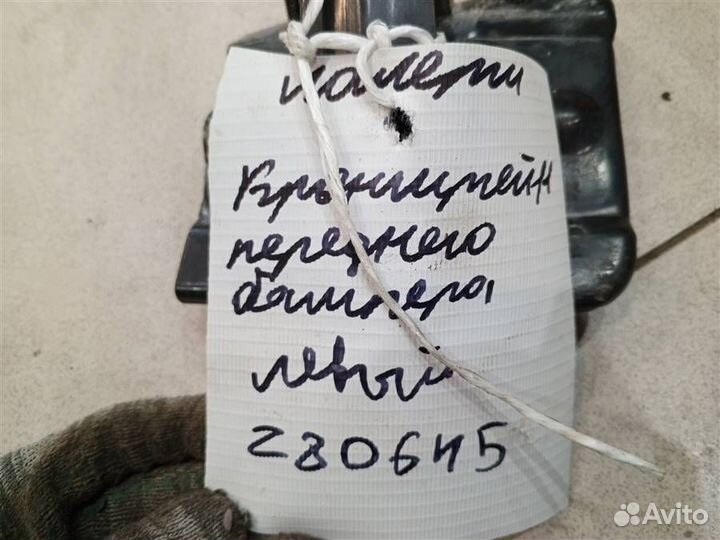 Кронштейн
переднего
бампера
левый
280645
Avito